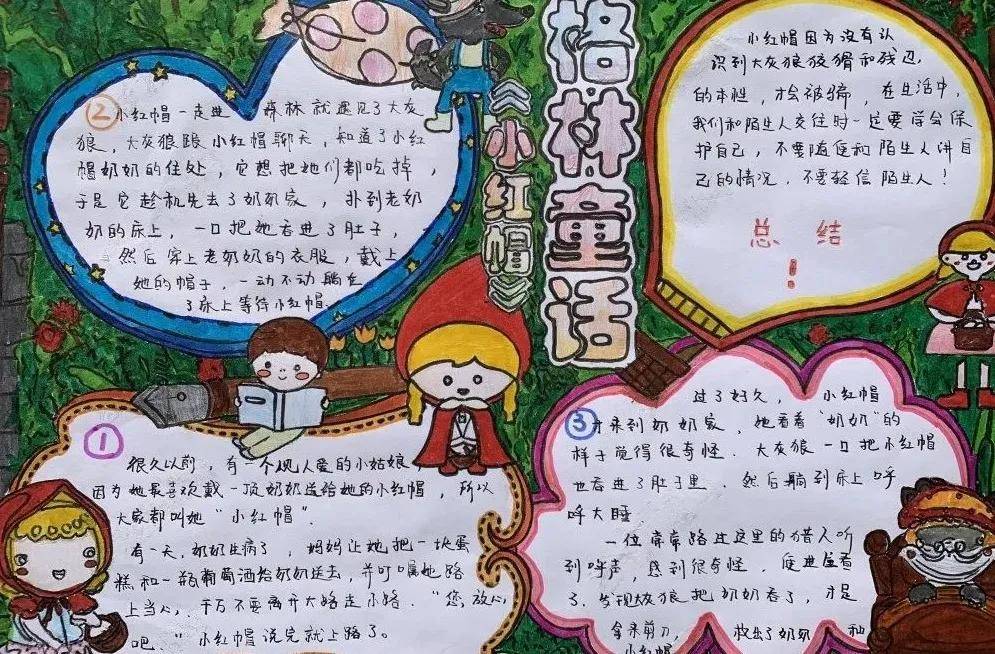 格林童话
《小红帽》
①
很久以前，有一个现人爱的小姑娘
因为她最喜欢戴一顶奶奶送给她的小红帽，所以
大家都叫她“小红帽”.
有一天，奶奶生病了，妈妈让她把一块蛋
糕和一瓶葡萄酒给奶奶送去，并叮嘱她路
上当心，千万不要离开大路走小路.“您放心
吧.”小红帽说完就上路了。
②
小红帽一走进森林就遇见了大灰
狼，大灰狼跟小红帽聊天，知道了小红
帽奶奶的住处，它想把她们都吃掉，
于是它趁机先去了奶奶家，扑到老奶
奶的床上，一口把她吞进了肚子，
然后穿上老奶奶的衣服，戴上
她的帽子，一动不动躺在
了床上等待小红帽.
③
过了好久，小红帽
才来到奶奶家，她看着“奶奶”的
样子觉得很奇怪.大灰狼一口把小红帽
也吞进了肚子里.然后躺到床上呼
呼大睡
一位常常路过这里的猎人听
到呼声，感到很奇怪.便进屋看
了.发现大灰狼把奶奶吞了，于是
拿来剪刀，救出了奶奶和
小红帽
小红帽因为没有认
识到大灰狼狡猾和残忍
的本性，才会被骗，在生活中，
我们和陌生人交往时一定要学会保
护自己，不要随便和陌生人讲自
己的情况.不要轻信陌生人！
总结
！